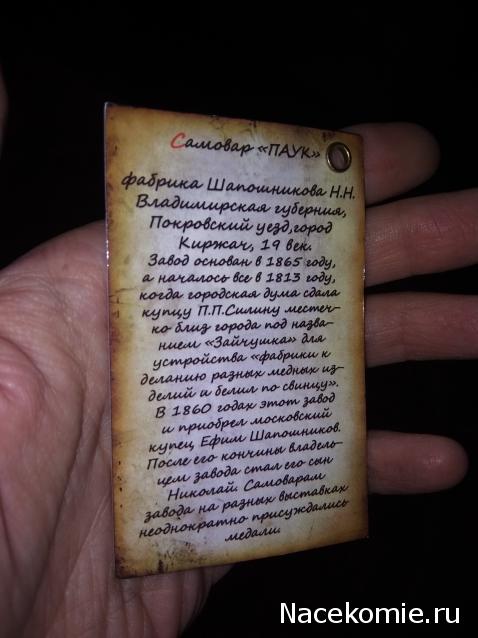 Самовар «ПАУК»
фабрика Шапошникова Н.Н.
Владимирская губерния,
Покровский уезд,город
Киржач, 19 век.
Завод основан в 1865 году,
а началось все в 1813 году,
когда городская дума сдала
купцу П.П.Силину местеч-
ко близ города под назва-
нием «Зайчушка» для
устройства «фабрики к
деланию разных медных из-
делий и белил по свинцу».
В 1860 годах этот завод
и приобрел московский
купец Ефим Шапошников.
После его кончины владель-
цем завода стал его сын
Николай. Самоварам
завода на разных выставках
неоднократно присуждались
медали
Nacekomie.ru